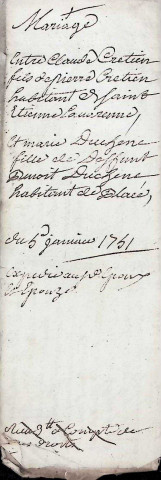 Mariage
Entre Claude Cretien
fils de pierre Cretien
habitant de Saint
Etienne Lavarenne,
Et marie Duchene
fille de Deffunt
Benoit Duchene
habitant de Placé,
du 5.e janvier 1751
Expedié aux d. Epoux
et Epouze